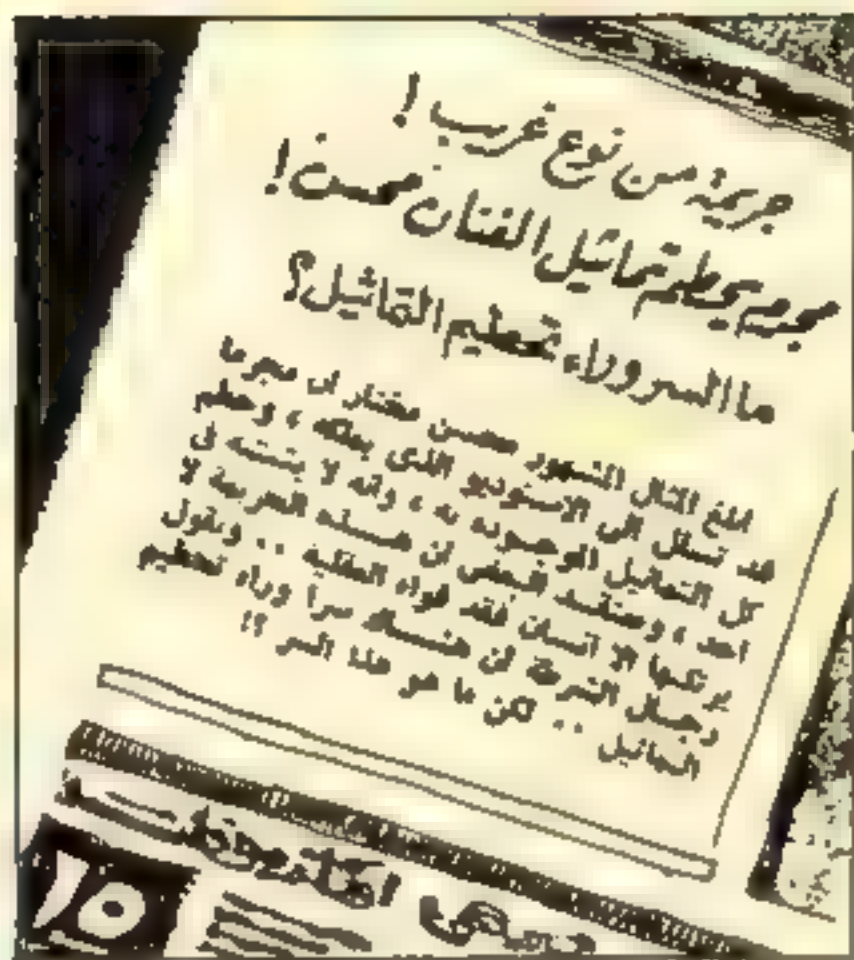 جريمة من نوع غريب !
مجرم يحطم تماثيل الفنان محسن !
ما السر وراء تحطيم التماثيل ؟
ابلغ المثال المشهور محسن مختار ان مجرما
قد تسلل الى الاستوديو الذى يملكه ، وحطم
كل التماثيل الموجوده به ، وانه لا يشتبه فى
احد ، ويعتقد البعض ان هذه الجريمة لا
يرتكبها الا انسان فقد قواه العقلية .. ويقول
رجال الشرطة ان هناك سرا وراء تحطيم
التماثيل .. لكن ما هو هذا السر ؟!
١٥